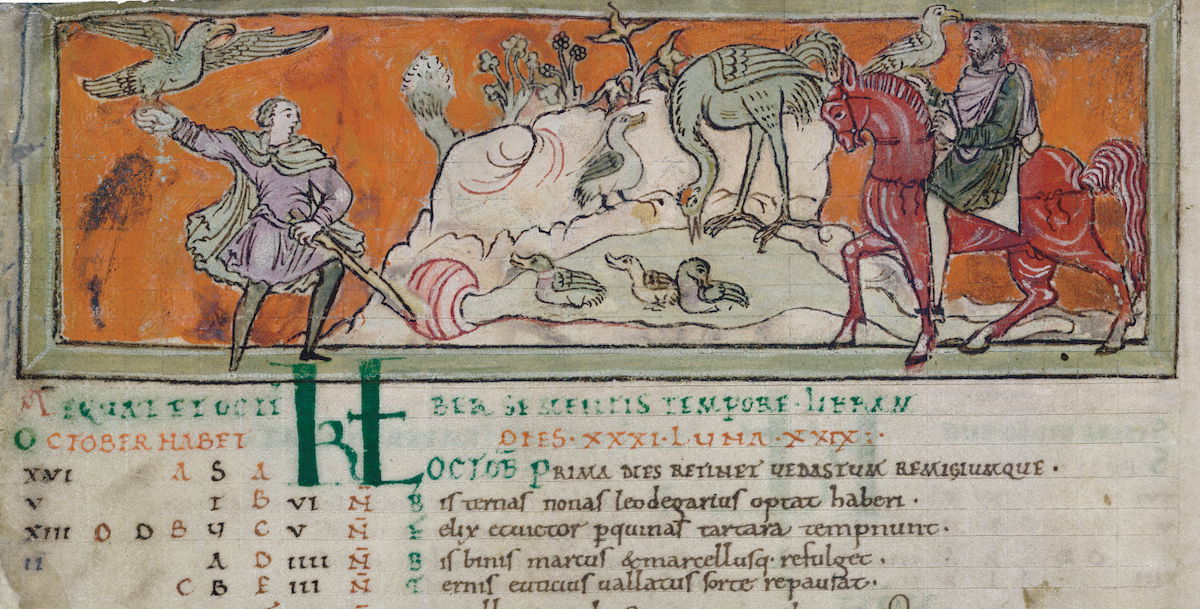 MEQUAT ET OCTIMBER SEMENTIS TEMPORE LIBRAM
OCTOBER HABET DIES·XXXI·LUNA·XXIX·
XVI A S A KL OCTOB PRIMA DIES RETINET UEDASTUM REMIGIUMQUE.
V T B VI N Bis ternas nonas leodegarius optat haberi.
XIII O D B Y C V N Felix et uictor pquinas tartara tempnunt.
II A D IIII N Bis binis marcus & marcellusq. refulget.
C B E III N Ternis euticus uallatus sorte repausat.